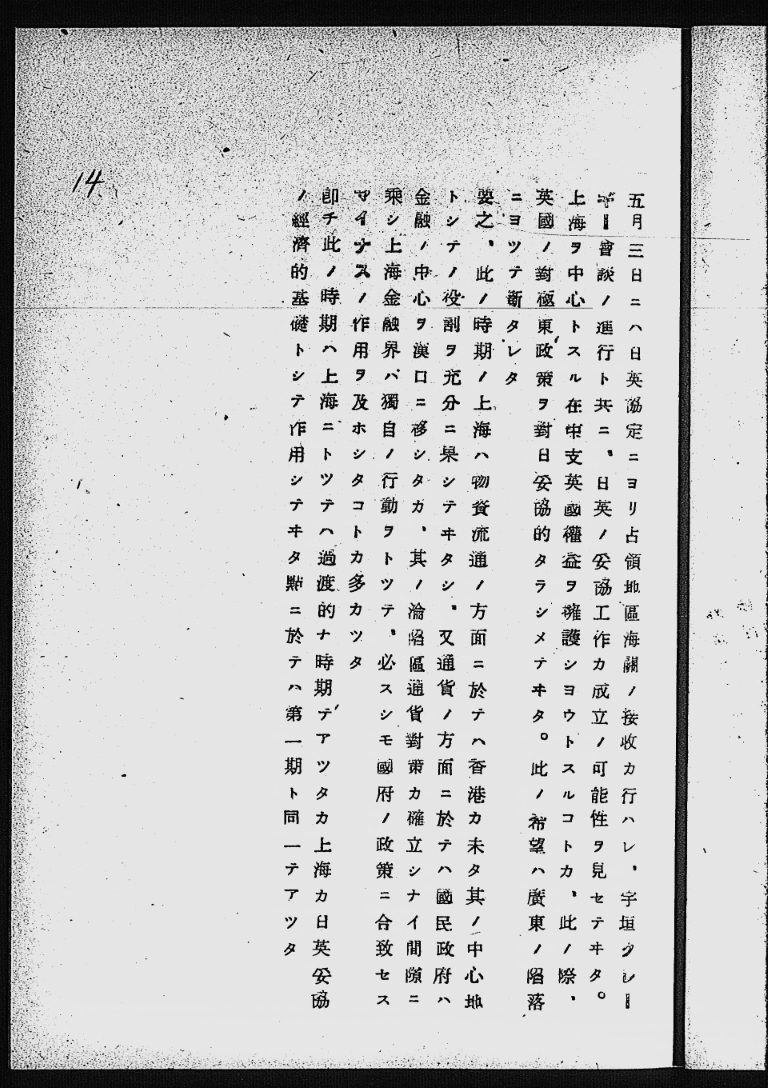 五月三日ニハ日英協定ニヨリ占領地區海關ノ接收カ行ハレ、宇垣クレー
ギー會談ノ進行ト共ニ、日英ノ妥協工作カ成立ノ可能性ヲ見セテヰタ。
上海ヲ中心トスル在中支英國權益ヲ擁護シヨウトスルコトカ、此ノ際、
英國ノ對極東政策ヲ對日妥協的タラシメテヰタ。此ノ希望ハ廣東ノ陷落
ニヨツテ斷タレタ
要之、此ノ時期ノ上海ハ物資流通ノ方面ニ於テハ香港カ未タ其ノ中心地
トシテノ役割ヲ充分ニ果シテヰタシ、又通貨ノ方面ニ於テハ國民政府ハ
金融ノ中心ヲ漢口ニ移シタカ、其ノ淪陷區通貨對策カ確立シナイ間隙ニ
乘シ上海金融界ハ獨自ノ行動ヲトツテ、必スシモ國府ノ政策ニ合致セス
マイナスノ作用ヲ及ホシタコトカ多カツタ
卽チ此ノ時期ハ上海ニトツテハ過渡的ナ時期テアツタカ上海カ日英妥協
ノ經濟的基礎トシテ作用シテヰタ點ニ於テハ第一期ト同一テアツタ
14